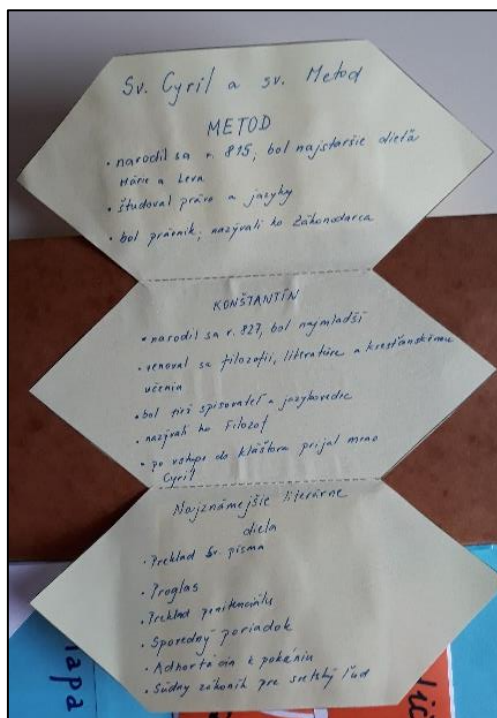 Sv. Cyril a sv. Metod
METOD
• narodil sa r. 815, bol najstaršie dieťa
Márie a Leva
• študoval právo a jazyky
• bol právnik, nazývali ho Zákonodarca
KONŠTANTÍN
• narodil sa r. 827, bol najmladší
• venoval sa filozofii, literatúre a kresťanskému
učeniu
• bol tiež spisovateľ a jazykovedec
• nazývali ho Filozof
• po vstupe do kláštora prijal meno
Cyril
Najznámejšie literárne
diela
• Preklad Sv. písma
• Proglas
• Preklad penitenciálu
• Spovedný poriadok
• Adhortácia k pokániu
• Súdny zákonník pre svetský ľud
lapa